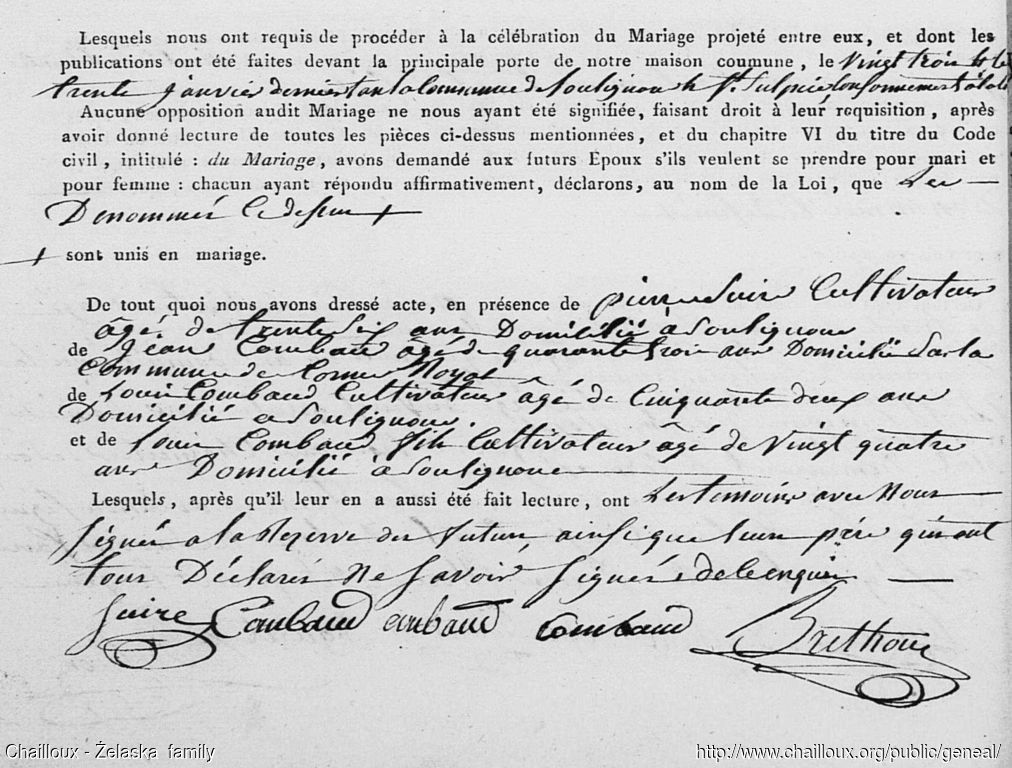 Lesquels nous ont requis de procéder à la célébration du Mariage projeté entre eux, et dont les
publications ont été faites devant la principale porte de notre maison coumune, le Vingt trois & le
trente Janvier dernier dans la Commune de Soulignoux & St. Sulpice Conformement à la loi
Aucune opposition audit Mariage ne nous ayant été signifiée, faisant droit à leur requisition, après
avoir donné lecture de toutes les pièces ci-dessus mentionnées, et du chapitre VI du titre du Code
civil, intitulé : du Mariage, avons demandé aux futurs Epoux s'ils veulent se prendre pour mari et
pour femme : chacun ayant répondu affirmativement, déclarons, au nom de la Loi, que Les
Denommés Cy dessus +
+ sont unis en mariage.
De tout quoi nous avons dressé acte, en présence de pierre Suire Cultivateur
âgé de trente Six ans Domicilié à Soulignoux
de Jean Combaud âgé de quarante trois ans Domicilié dans la
Commune de Corme Royal
de Louis Combaud Cultivateur âgé de Cinquante deux ans
Domicilié a Soulignoux.
et de Louis Combaud fils Cultivateur âgé de Vingt quatre
ans Domicilié à Soulignoux
Lesquels, après qu'il leur en a aussi été fait lecture, ont Les temoins avec Nous
Signés a la Rezerve des futurs, ainsi que leurs père qui ont
tous Déclarés Ne Savoir Signés de ce enquis
Suire Combaud combaud combaud Brethoux
Chailloux - Želaska family
http://www.chailloux.org/public/geneal/